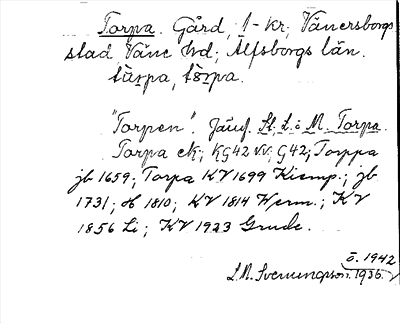 Torpa. Gård, 1-kr, Vänersborgs
stad Väne hd; Älfsborgs län.
tùrpa, tòrpa.
"Torpen". Jämf. St., L. o. M. Torpa.
Torpa ek; KG42 NV; G42; Torppa
jb 1659; Torpa KV 1699 Kiemp.; jb
1731; H 1810; KV 1814 Werm.; KV
1856 Li; KV 1923 Grude.
ö. 1942
L.M. Svenungsson. 1936.